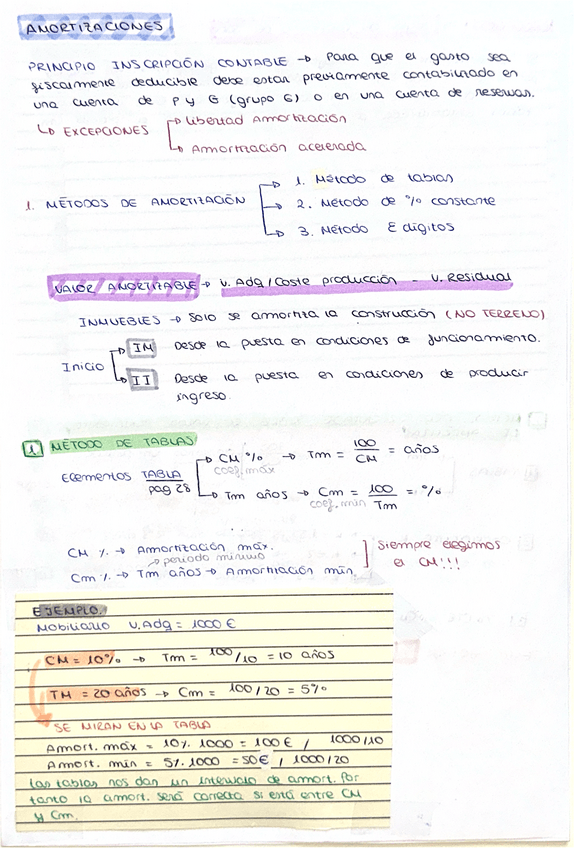 AMORTIZACIONES
PRINCIPIO INSCRIPCIÓN CONTABLE → Para que el gasto sea
fiscalmente deducible debe estar previamente contabilizado en
una cuenta de P y G (grupo 6) o en una cuenta de reservas.
↳ EXCEPCIONES → Libertad Amortización
→ Amortización acelerada
1. MÉTODOS DE AMORTIZACIÓN → 1. Método de tablas
→ 2. Método de % constante
→ 3. Método Σ dígitos
VALOR AMORTIZABLE → V. Adq / Coste producción - V. Residual
INMUEBLES → Solo se amortiza la construcción (NO TERRENO)
Inicio → IM Desde la puesta en condiciones de funcionamiento.
→ II Desde la puesta en condiciones de producir
ingreso.
1. MÉTODO DE TABLAS
Elementos TABLA pag 28 → CM % → Tm = 100/CM = años
coef. máx
→ Tm años → Cm = 100/Tm = %
coef. min
CM % → Amortización máx.
→ periodo mínimo
Cm % → Tm años → Amortización mín.
Siempre elegimos
el CM!!!
EJEMPLO.
Mobiliario V. Adq = 1000 €
CM = 10% → Tm = 100/10 = 10 años
TM = 20 años → Cm = 100/20 = 5%
SE MIRAN EN LA TABLA
Amort. máx = 10% 1000 = 100 € / 1000/10
Amort. min = 5% 1000 = 50 € / 1000/20
Las tablas nos dan un intervalo de amort. Por
tanto la amort. será correcta si está entre CM
y Cm.